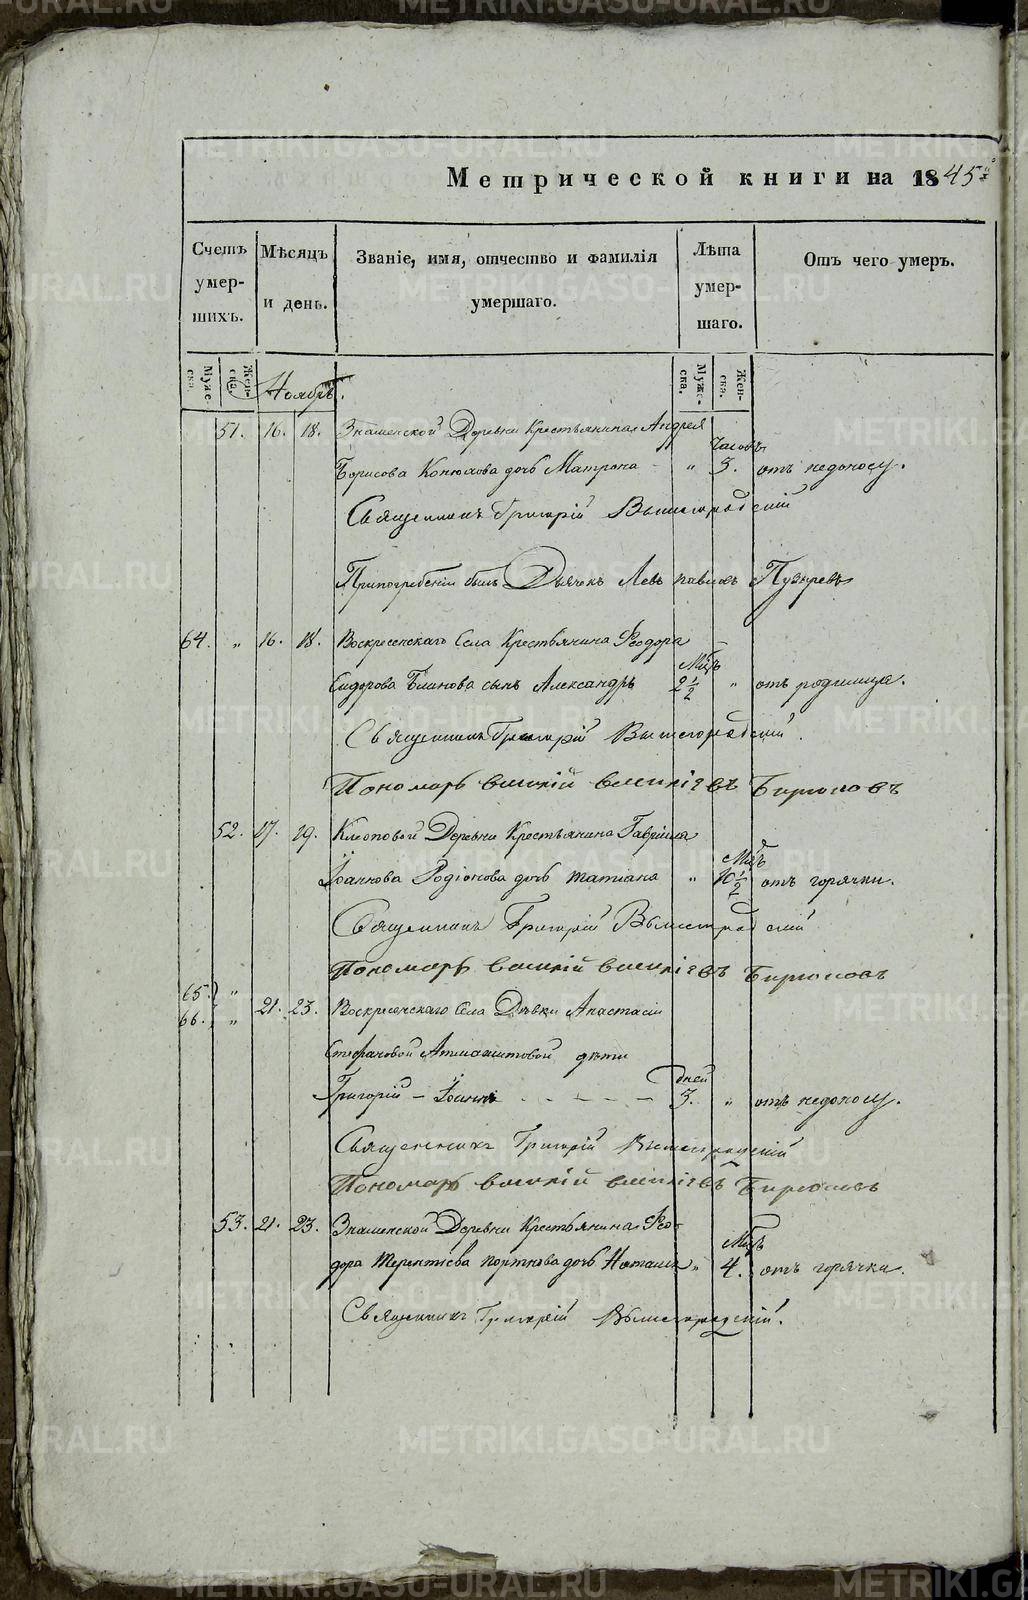 Метрической книги на 1845й
Счетъ умер-шихъ.
Мѣсяцъ и день.
Званіе, имя, отчество и фамилія умершаго.
Лѣта умер-шаго.
Отъ чего умеръ.
Муже-ска. Жен-ска. Муже-ска. Жен-ска.
Ноябрь.
51. 16. 18. Знаменской Деревни Крестьянина Андрея
Часовъ
Борисова Конюхова дочь Матрона - " 3. отъ недоносу.
Священникъ Григорій Вышегородскій
При погребеніи былъ Дьячекъ Левъ Павловъ Пузыревъ
64. " 16. 18. Воскресенскаго Села Крестьянина Феодора
Мцъ
Сидорова Блинова сынъ Александръ 2 1/2 " отъ родимца.
Священникъ Григорій Вышегородскій.
Пономарь Василій Васильевъ Бирюковъ
52. 17. 19. Клюповой Деревни Крестьянина Гавріила
Мцъ
Іоаннова Родіонова дочь Татіана " 10 1/2 отъ горячки.
Священникъ Григорій Вышегородскій
Пономарь Василій Васильевъ Бирюковъ
65. "
66. " 21. 23. Воскресенскаго Села Дѣвки Анастасіи
Стефановой дѣти
Дней
Григорій - Іоаннъ - - - - - 3. " отъ недоносу.
Священникъ Григорій Вышегородскій
Пономарь Василій Васильевъ Бирюковъ
53. 21. 23. Знаменской Деревни Крестьянина Фео-
Мцъ
дора Терентіева Портнова дочь Наталія " 4. отъ горячки.
Священникъ Григорій Вышегородскій.
METRIKI.GASO-URAL.RU